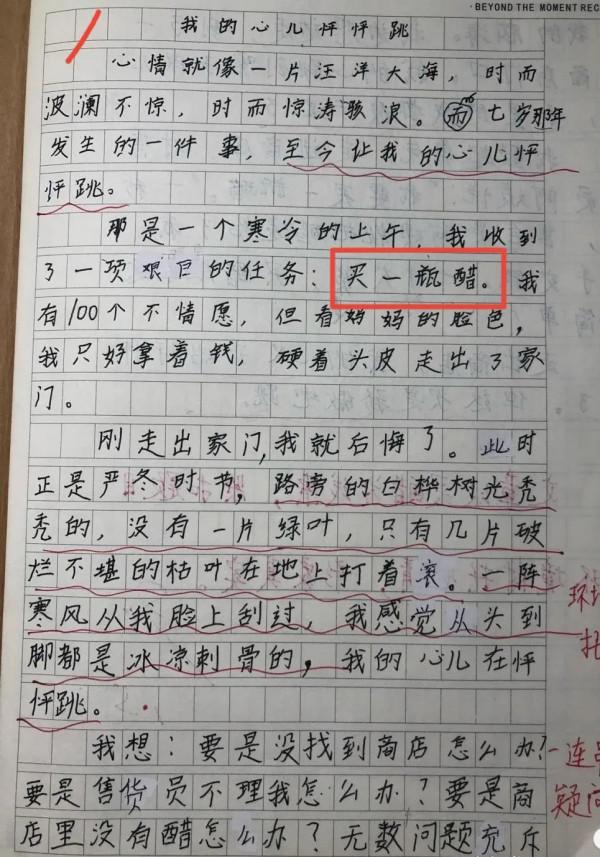 · BEYOND THE MOMENT REC
我的心儿怦怦跳
心情就像一片汪洋大海，时而
波澜不惊，时而惊涛骇浪。而七岁那年
发生的一件事，至今让我的心儿怦
怦跳。
那是一个寒冷的上午，我收到
了一项艰巨的任务：买一瓶醋。我
有100个不情愿，但看妈妈的脸色，
我只好拿着钱，硬着头皮走出了家
门。
刚走出家门，我就后悔了。此时
正是严冬时节，路旁的白桦树光秃
秃的，没有一片绿叶，只有几片破
烂不堪的枯叶在地上打着滚。一阵
环境
寒风从我脸上刮过，我感觉从头到
脚都是冰凉刺骨的，我的心儿在怦
怦跳。
我想：要是没找到商店怎么办？
一连串
要是售货员不理我怎么办？要是商
疑问
店里没有醋怎么办？无数问题充斥